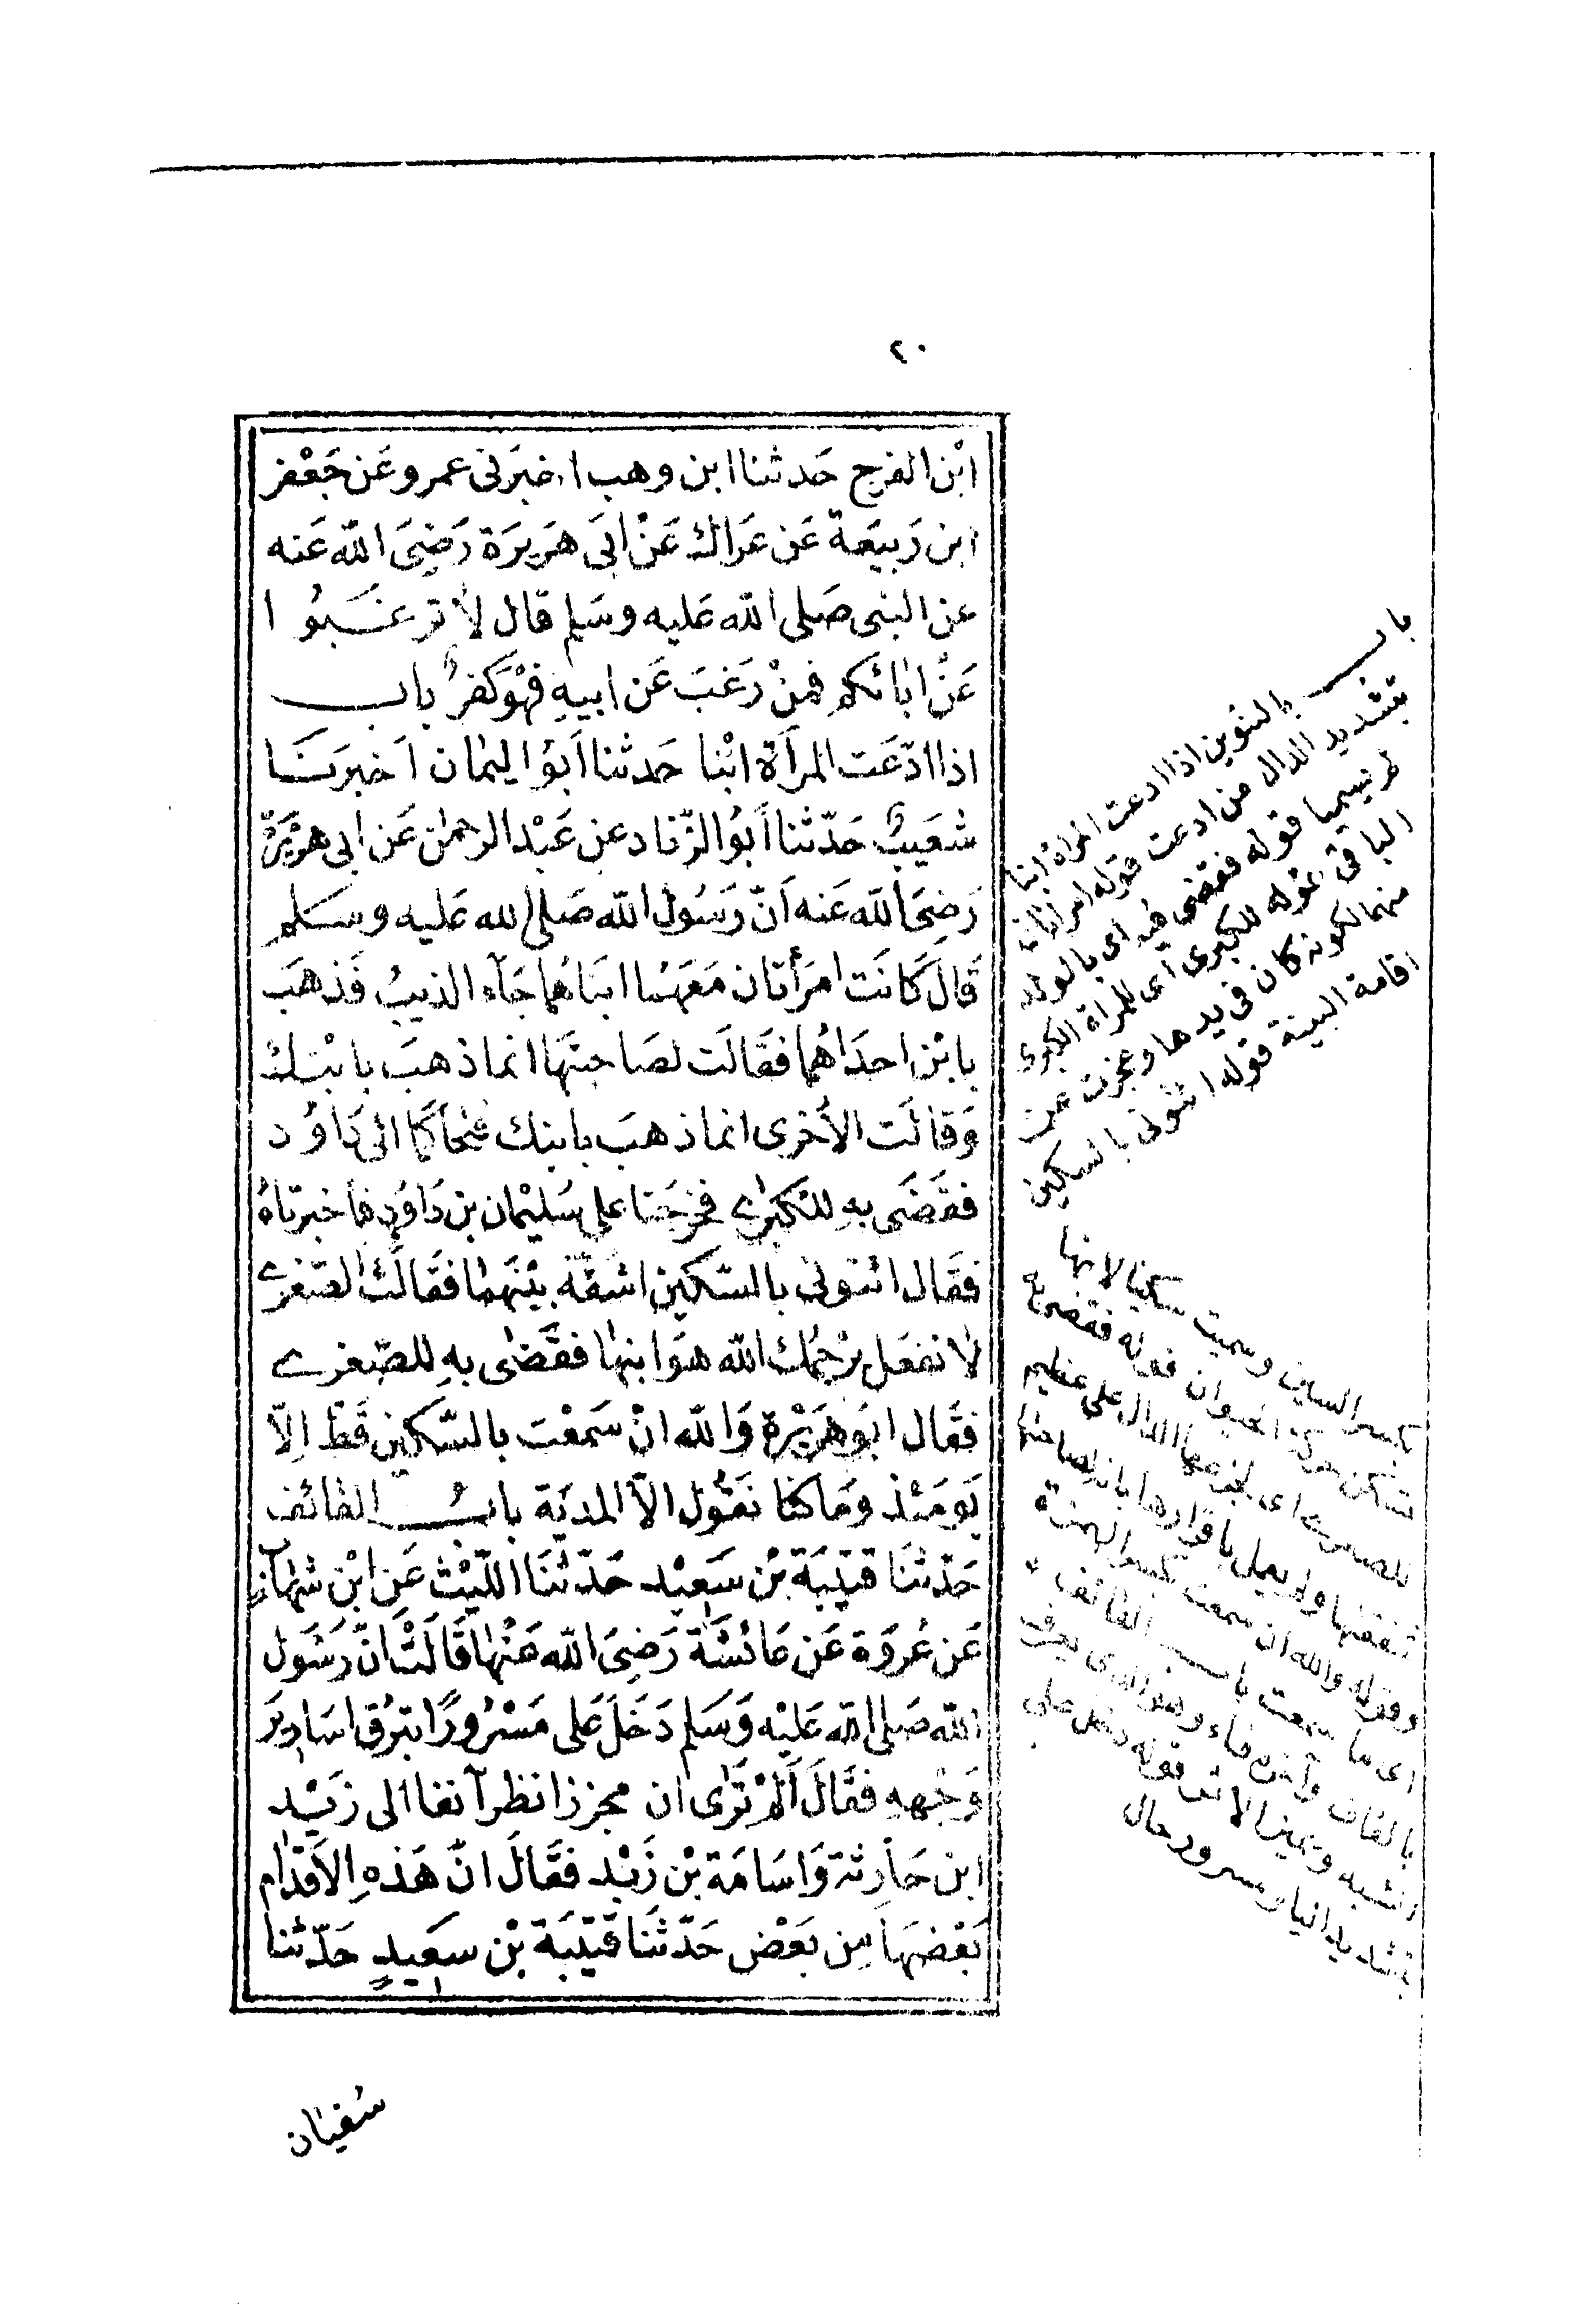 ٢٠
ابْن الفرج حَدثنا ابن وهب اخبرَنى عمرو عَن جَعْفر
ابن رَبيعَة عَن عَراك عَنْ ابى هَريرَة رَضِىَ اللّه عَنه
عن النبى صَلى اللّه عَليه وسَلم قال لاَ ترغبُوا
عَنْ ابائكم فمنْ رَغبَ عَن ابيهِ فهْوَ كفرٌ باب
اذا ادّعَت المرأة ابْنا حَدثنا أبوُ اليمٰان اَخبرَنَا
شعَيبٌ حَدّثنا أبوُ الزّناد عن عَبْد الرحمٰن عَن ابى هرَيْرَة
رَضِىَ اللّه عَنه اَنّ رَسُول اللّه صَلى اللّه عَليه وسَلم
قالَ كَانَت امرَأتان مَعَهمُا ابنَاهُما جَاء الذيبُ فَذهَب
بابْن احدَاهُما فقَالَت لصَاحبتهَا انما ذهَبَ بابْنك
وَقالَت الأخرى انما ذهبَ بابنك فتحاكما الى دَاوُد
فقَضَى بهِ للكبرٰى فخرجَتا على سُليْمان بن دَاوُد فاخبرتاهُ
فقَال ائتونى بالسّكين اشقّهُ بيْنَهمٰا فقَالَت الصّغرى
لاٰ تفعَل يرْحمُك اللّه هوَ ابنهٰا فقَضٰى بهِ للصّغرى
فقَال ابوُ هرَيْرة وَاللّه انْ سَمعْت بالسّكين قَطّ اِلاّ
يَومَئذ وَمَا كنا نقوُل الاّ المديَة بابُ القائف
حَدّثنَا قتيْبَة بْن سَعِيْد حَدّثنَا اللّيْث عَن ابْن شهَاب
عَن عُروَة عَن عَائشَة رَضِىَ اللّه عَنْهٰا قَالَتْ انّ رَسُول
اللّه صَلى اللّه عَليْه وَسَلم دَخَلَ عَلى مَسْرُورًا تبرُق اسَارِيرَ
وَجْههِ فقَالَ ألمْ تَرٰى ان مجززا نظر آنفا الى زيَْد
ابن حَارِثة وَاسَامَة بْن زَيْد فقَالَ انّ هَذهِ الأقدَام
بَعْضهَا مِن بَعْض حَدّثنَا قتيْبَة بْن سعَيدٍ حَدّثنا
سُفيٰان
باب بالتنوين اذا ادعت المراة ابنا
بتشديد الدال من ادعت قوله امراتان
لم يسميا قوله فقضى به اى بالولد
الباقى قوله للكبرى اى للمراة الكبرى
منهما لكونه كان فى يدها وعجزت عن
اقامة البينة قوله ائتونى بالسكين
بكسر السين وسميت سكينا لانها
تسكن حركة الحيوان قوله فقضى به
للصغرى اى لجزعها الدال على عظيم
شفقتها ولم يعمل باقرارها بانه لصاحبتها
وقوله والله ان سمعت بكسر الهمزة
اى ما سمعت باب القائف
بالقاف وآخره فاء وهو الذى يعرف
الشبه ويميز الاثر قوله دخل على
بتشديد اليا ومسرور حال